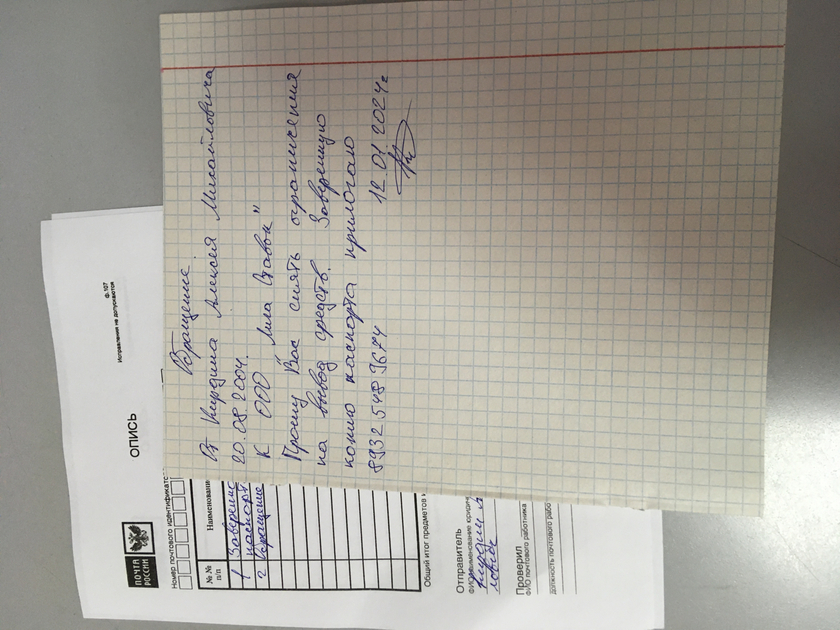 Обращение.
От Кирдина Алексея Михайловича
20.08.2004.
К ООО "Лига Ставок"
Прошу Вас снять ограничения
на вывод средств. Заверенную
копию паспорта прилогаю
89325489674 12.01.2024г
ф. 107
Исправления не допускаются
ОПИСЬ
ПОЧТА РОССИИ
Номер почтового идентификатора
№№ п/п Наименование
1 Заверенно
паспорт
2 Обращение
Общий итог предметов и
Отправитель
Кирдин А
Проверил
ФИО почтового работника
должность почтового рабо